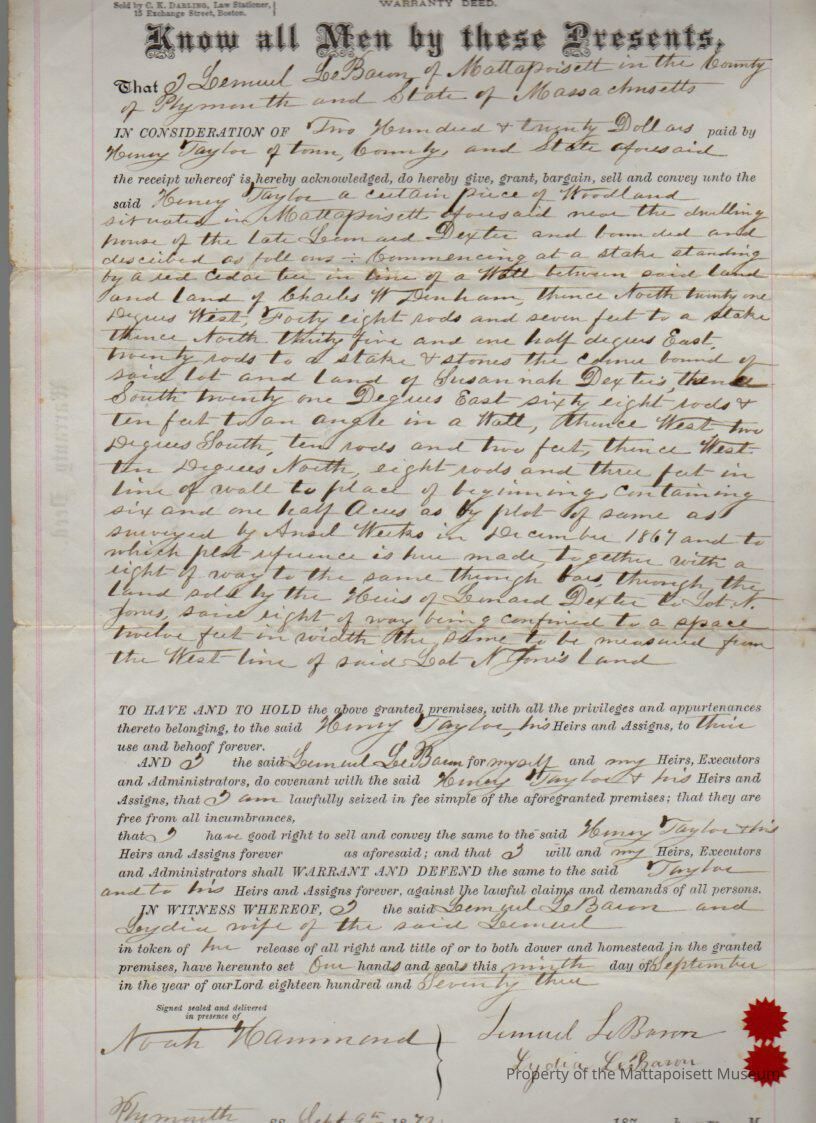 Sold by C. K. DARLING, Law Stationer,
15 Exchange Street, Boston.
WARRANTY DEED.
Know all Men by these Presents,
That I Lemuel LeBaron of Mattapoisett in the County
of Plymouth and State of Massachusetts
IN CONSIDERATION OF Two Hundred & twenty Dollars paid by
Henry Taylor of town, County, and State aforesaid
the receipt whereof is hereby acknowledged, do hereby give, grant, bargain, sell and convey unto the
said Henry Taylor a certain piece of Woodland
situated in Mattapoisett aforesaid near the dwelling
house of the late Leonard Dexter and bounded and
described as follows :- Commencing at a stake standing
by a red Cedar tree in line of a Wall between said land
and land of Charles W Denham, thence North twenty one
Degrees West, Forty eight rods and seven feet to a stake
thence North thirty five and one half degrees East,
twenty rods to a stake & stones the corner bound of
said lot and land of Susannah Dexter's thence
South twenty one Degrees East sixty eight rods &
ten feet to an angle in a Wall, thence West two
Degrees South, ten rods and two feet, thence West
ten Degrees North, eight rods and three feet in
line of wall to place of beginning, Containing
six and one half Acres as by plot of same as
surveyed by Ansel Weeks in December 1867 and to
which plot reference is here made, together with a
right of way to the same through bars, through the
land sold by the Heirs of Leonard Dexter to Lot N.
Jones, said right of way being confined to a space
twelve feet in width the same to be measured from
the West line of said Lot N Jones Land
TO HAVE AND TO HOLD the above granted premises, with all the privileges and appurtenances
thereto belonging, to the said Henry Taylor, his Heirs and Assigns, to their
use and behoof forever.
AND I the said Lemuel LeBaron for myself and my Heirs, Executors
and Administrators, do covenant with the said Henry Taylor & his Heirs and
Assigns, that I am lawfully seized in fee simple of the aforegranted premises; that they are
free from all incumbrances,
that I have good right to sell and convey the same to the said Henry Taylor & his
Heirs and Assigns forever as aforesaid; and that I will and my Heirs, Executors
and Administrators shall WARRANT AND DEFEND the same to the said Taylor
and to his Heirs and Assigns forever, against the lawful claims and demands of all persons.
IN WITNESS WHEREOF, I the said Lemuel LeBaron and
Lydia wife of the said Lemuel
in token of her release of all right and title of or to both dower and homestead in the granted
premises, have hereunto set Our hands and seals this ninth day of September
in the year of our Lord eighteen hundred and Seventy three
Signed sealed and delivered
in presence of
Noah Hammond
Lemuel LeBaron
Lydia LeBaron
Property of the Mattapoisett Museum
Plymouth ss Sept 9th